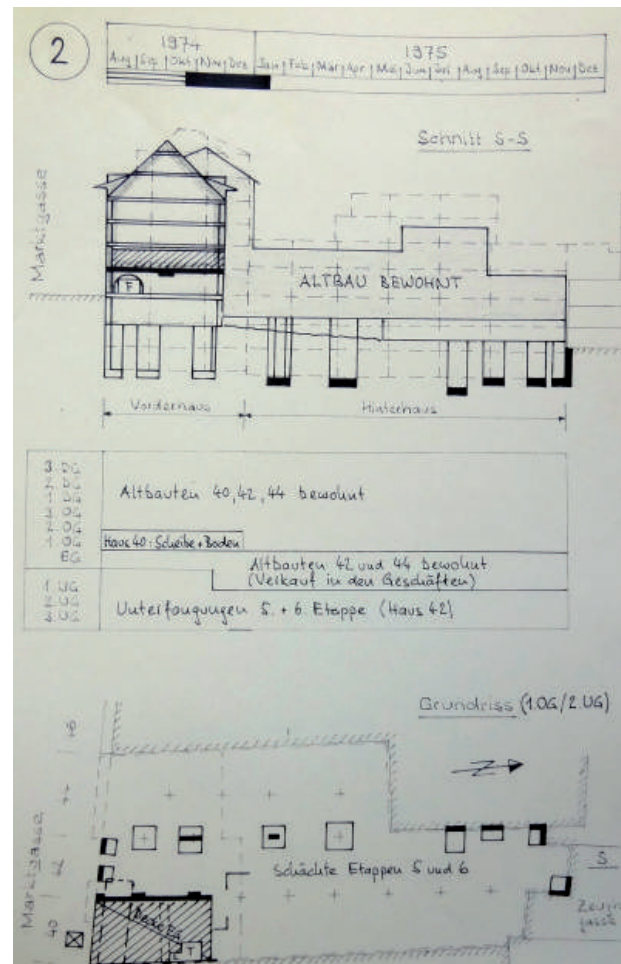 2
1974 1975
Aug Sep Okt Nov Dez Jan Feb Mär Apr Mai Jun Jul Aug Sep Okt Nov Dez
Schnitt S-S
Marktgasse
F
ALTBAU BEWOHNT
Vorderhaus Hinterhaus
3. DG
2. DG
1. DG
3. OG
2. OG
1. OG
EG
1. UG
2. UG
3. UG
Altbauten 40, 42, 44 bewohnt
Haus 40: Scheibe + Boden
Altbauten 42 und 44 bewohnt
(Verkauf in den Geschäften)
Unterfangungen 5. + 6. Etappe (Haus 42)
Grundriss (1.OG/2.UG)
Z
44
42
40
Marktgasse
Schächte Etappen 5 und 6
S
T